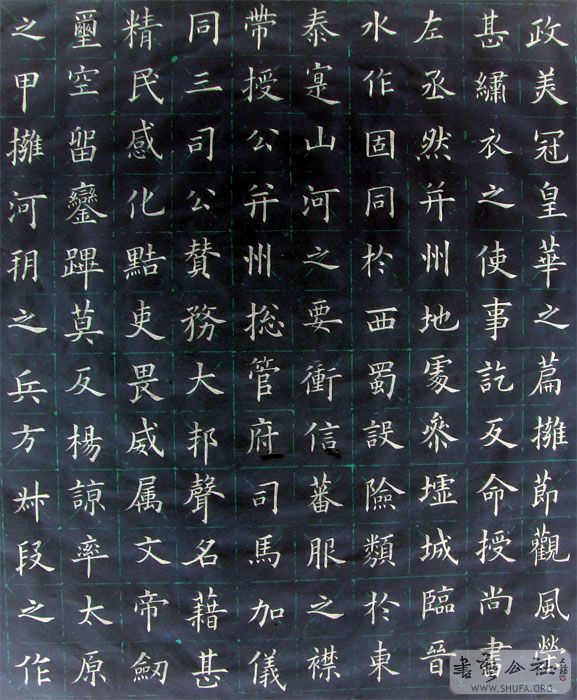 政美冠皇華之篇擁節觀風榮
甚繡衣之使事訖反命授尚書
左丞然并州地處參墟城臨晉
水作固同於西蜀設險類於東
泰寔山河之要衝信蕃服之襟
帶授公并州捴管府司馬加儀
同三司公贊務大邦聲名藉甚
精民感化黠吏畏威属文帝劒
璽空留鑾蹕莫反楊諒率太原
之甲擁河朔之兵方叔段之作
書法公社
WWW.SHUFA.ORG